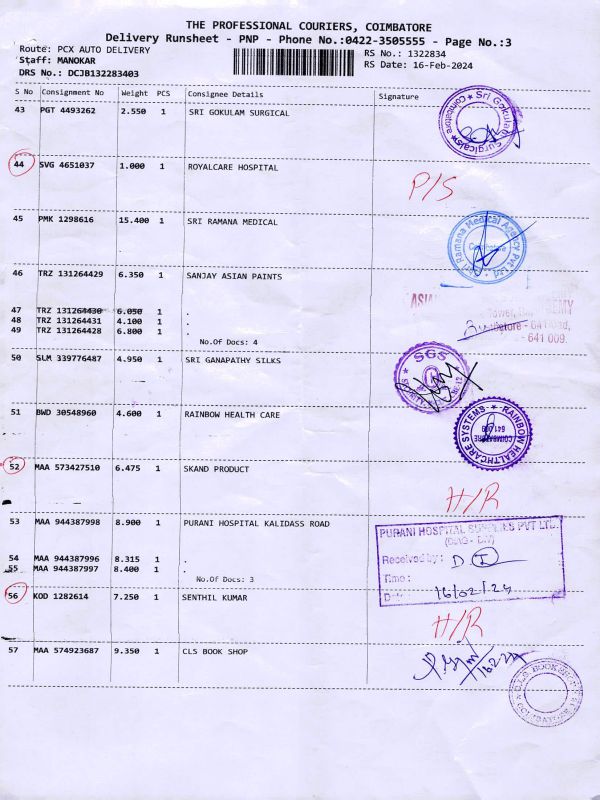 THE PROFESSIONAL COURIERS, COIMBATORE
Delivery Runsheet - PNP - Phone No.:0422-3505555 - Page No.:3
Route: PCX AUTO DELIVERY RS No.: 1322834
Staff: MANOKAR RS Date: 16-Feb-2024
DRS No.: DCJB132283403
S No Consignment No Weight PCS Consignee Details Signature
43 PGT 4493262 2.550 1 SRI GOKULAM SURGICAL
Sri Gokulam Surgicals
Coimbatore
44 SVG 4651037 1.000 1 ROYALCARE HOSPITAL
P/S
45 PMK 1298616 15.400 1 SRI RAMANA MEDICAL
Sri Ramana Medical Agency Pvt Ltd
Coimbatore
46 TRZ 131264429 6.350 1 SANJAY ASIAN PAINTS
47 TRZ 131264430 6.050 1 .
48 TRZ 131264431 4.100 1 .
49 TRZ 131264428 6.800 1 .
No.Of Docs: 4
- 641 009.
50 SLM 339776487 4.950 1 SRI GANAPATHY SILKS
SGS
51 BWD 30548960 4.600 1 RAINBOW HEALTH CARE
RAINBOW HEALTHCARE SYSTEMS
COIMBATORE
52 MAA 573427510 6.475 1 SKAND PRODUCT
H/R
53 MAA 944387998 8.900 1 PURANI HOSPITAL KALIDASS ROAD
PURANI HOSPITAL SUPPLIES PVT LTD.
54 MAA 944387996 8.315 1 .
55 MAA 944387997 8.400 1 .
No.Of Docs: 3
Received by :
Time :
Date : 16/02/24
56 KOD 1282614 7.250 1 SENTHIL KUMAR
H/R
57 MAA 574923687 9.350 1 CLS BOOK SHOP